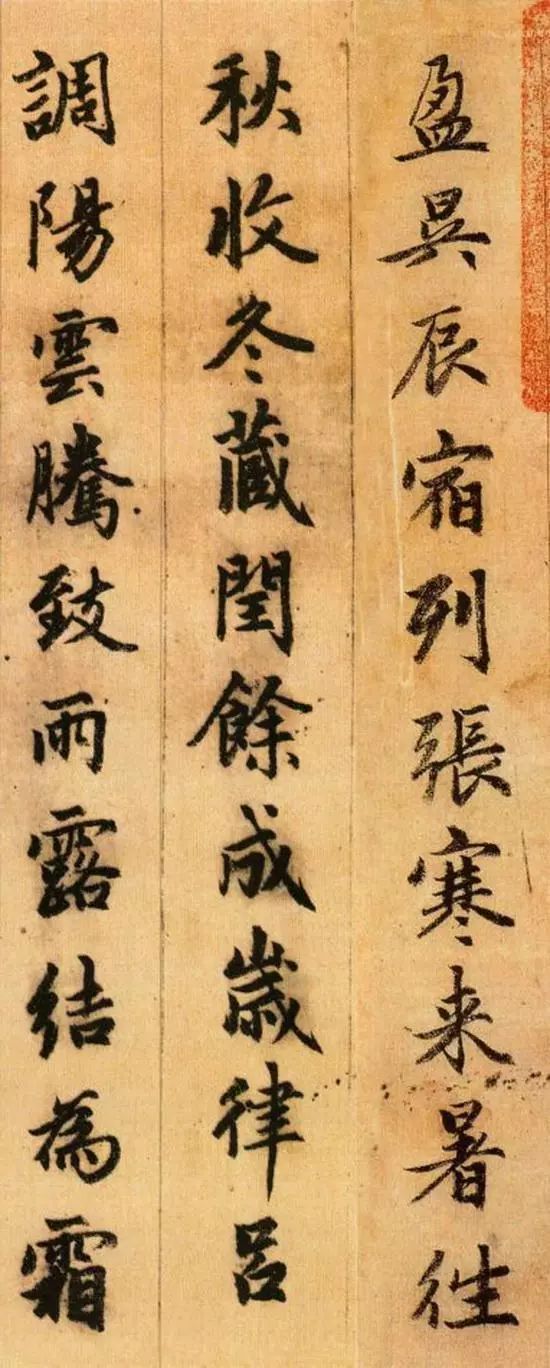 盈昃辰宿列張寒来暑往
秋收冬蔵閏餘成歲律呂
調陽雲騰致雨露結為霜